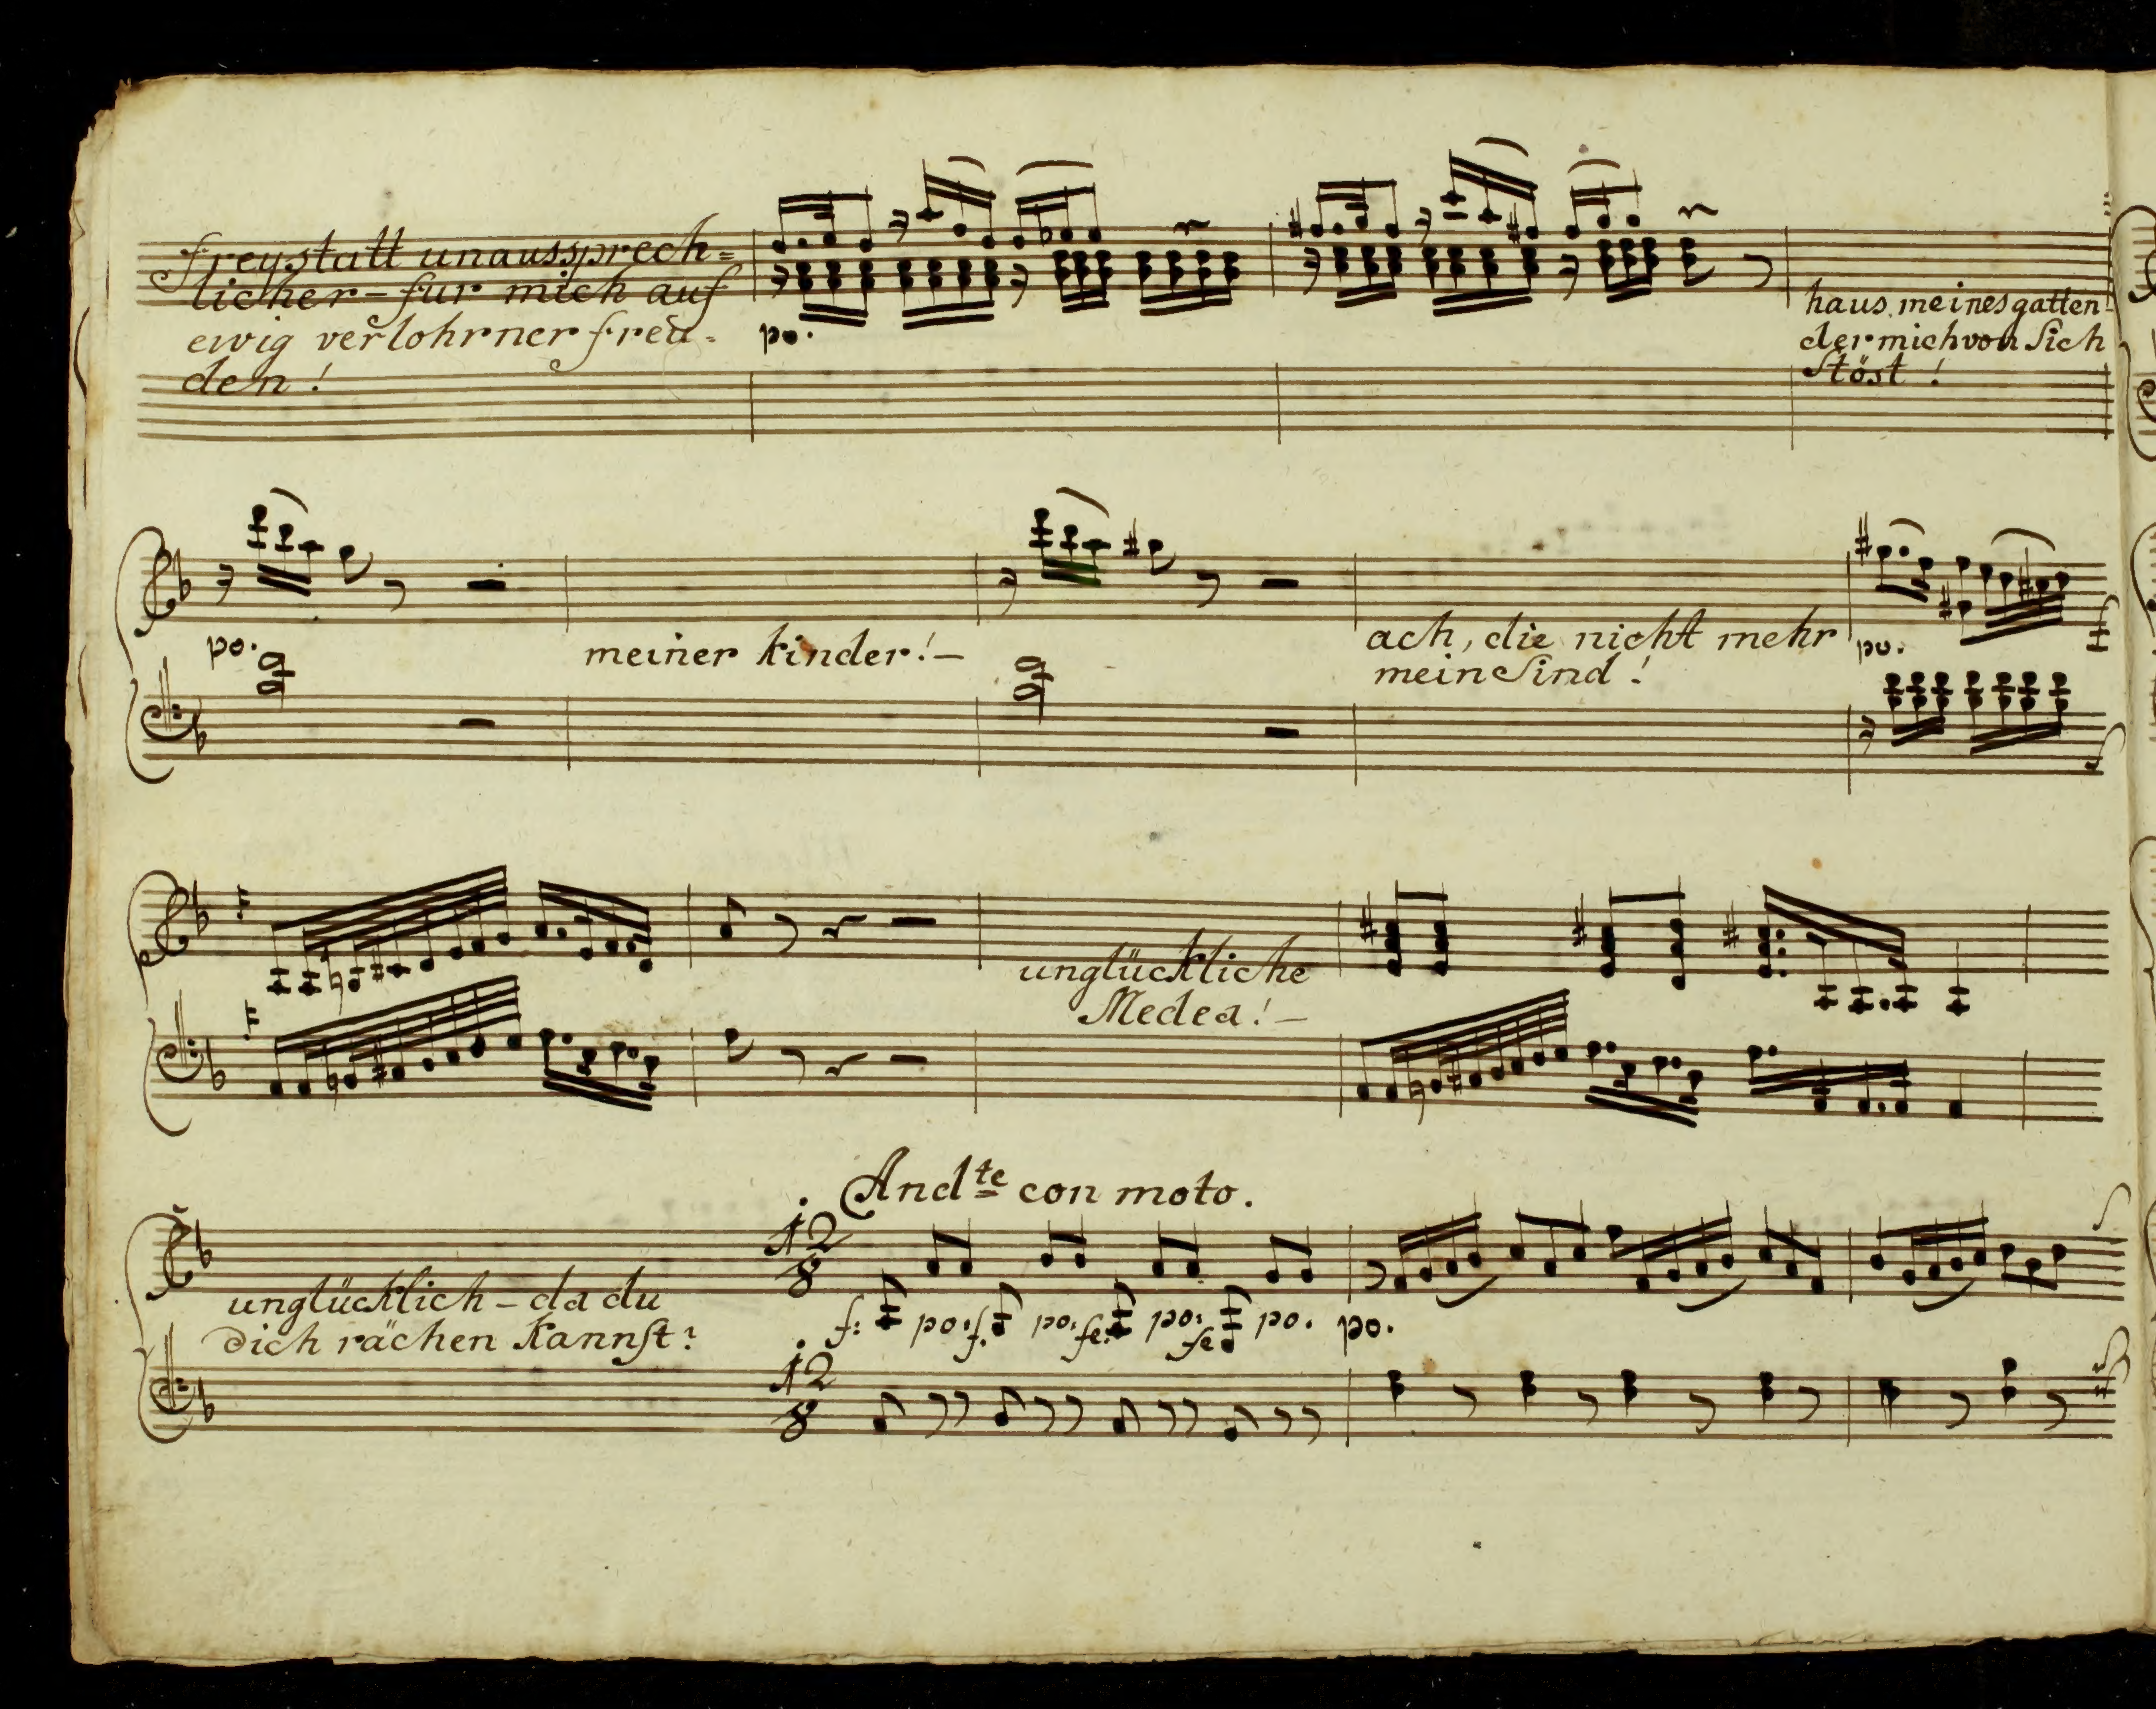 freystatt unaussprech=
licher – für mich auf
ewig verlohrner freu=
den!
po.
haus meines gatten
der mich von Sich
Stöst!
po.
meiner kinder! –
ach, die nicht mehr
mein Sind!
po.
unglückliche
Medea! –
Andte con moto.
12
8
unglücklich – da du
dich rächen kannst?
f: po: f. po: fe: po: fe po. po.
12
8